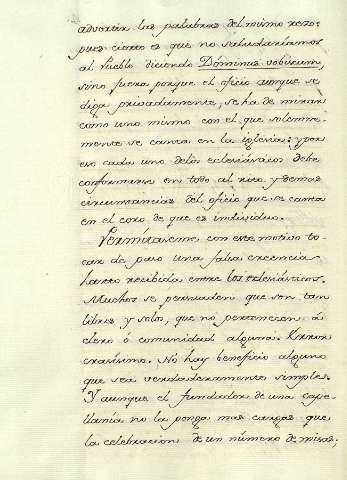 advertir las palabras del mismo rezo:
pues cierto es que no saludaríamos
al Pueblo diciendo Dominus vobiscum,
sino fuera porque el oficio aunque se
diga privadamente, se ha de mirar
como uno mismo con el que solemne-
mente se canta en la iglesia: y por
eso cada uno delos eclesiásticos debe
conformarse en todo al rito y demas
circunstancias del oficio que se canta
en el coro de que es individuo.
Permítaseme con este motivo to-
car de paso una falsa creencia
harto recibida entre los eclesiásticos.
Muchos se persuaden que son tan
libres y solos, que no pertenecen á
clero ó comunidad alguna. Error
crasísimo. No hay beneficio alguno
que sea verdaderamente simple.
Y aunque el fundador de una cape-
llanía no la ponga mas cargas que
la celebracion de un número de misas;